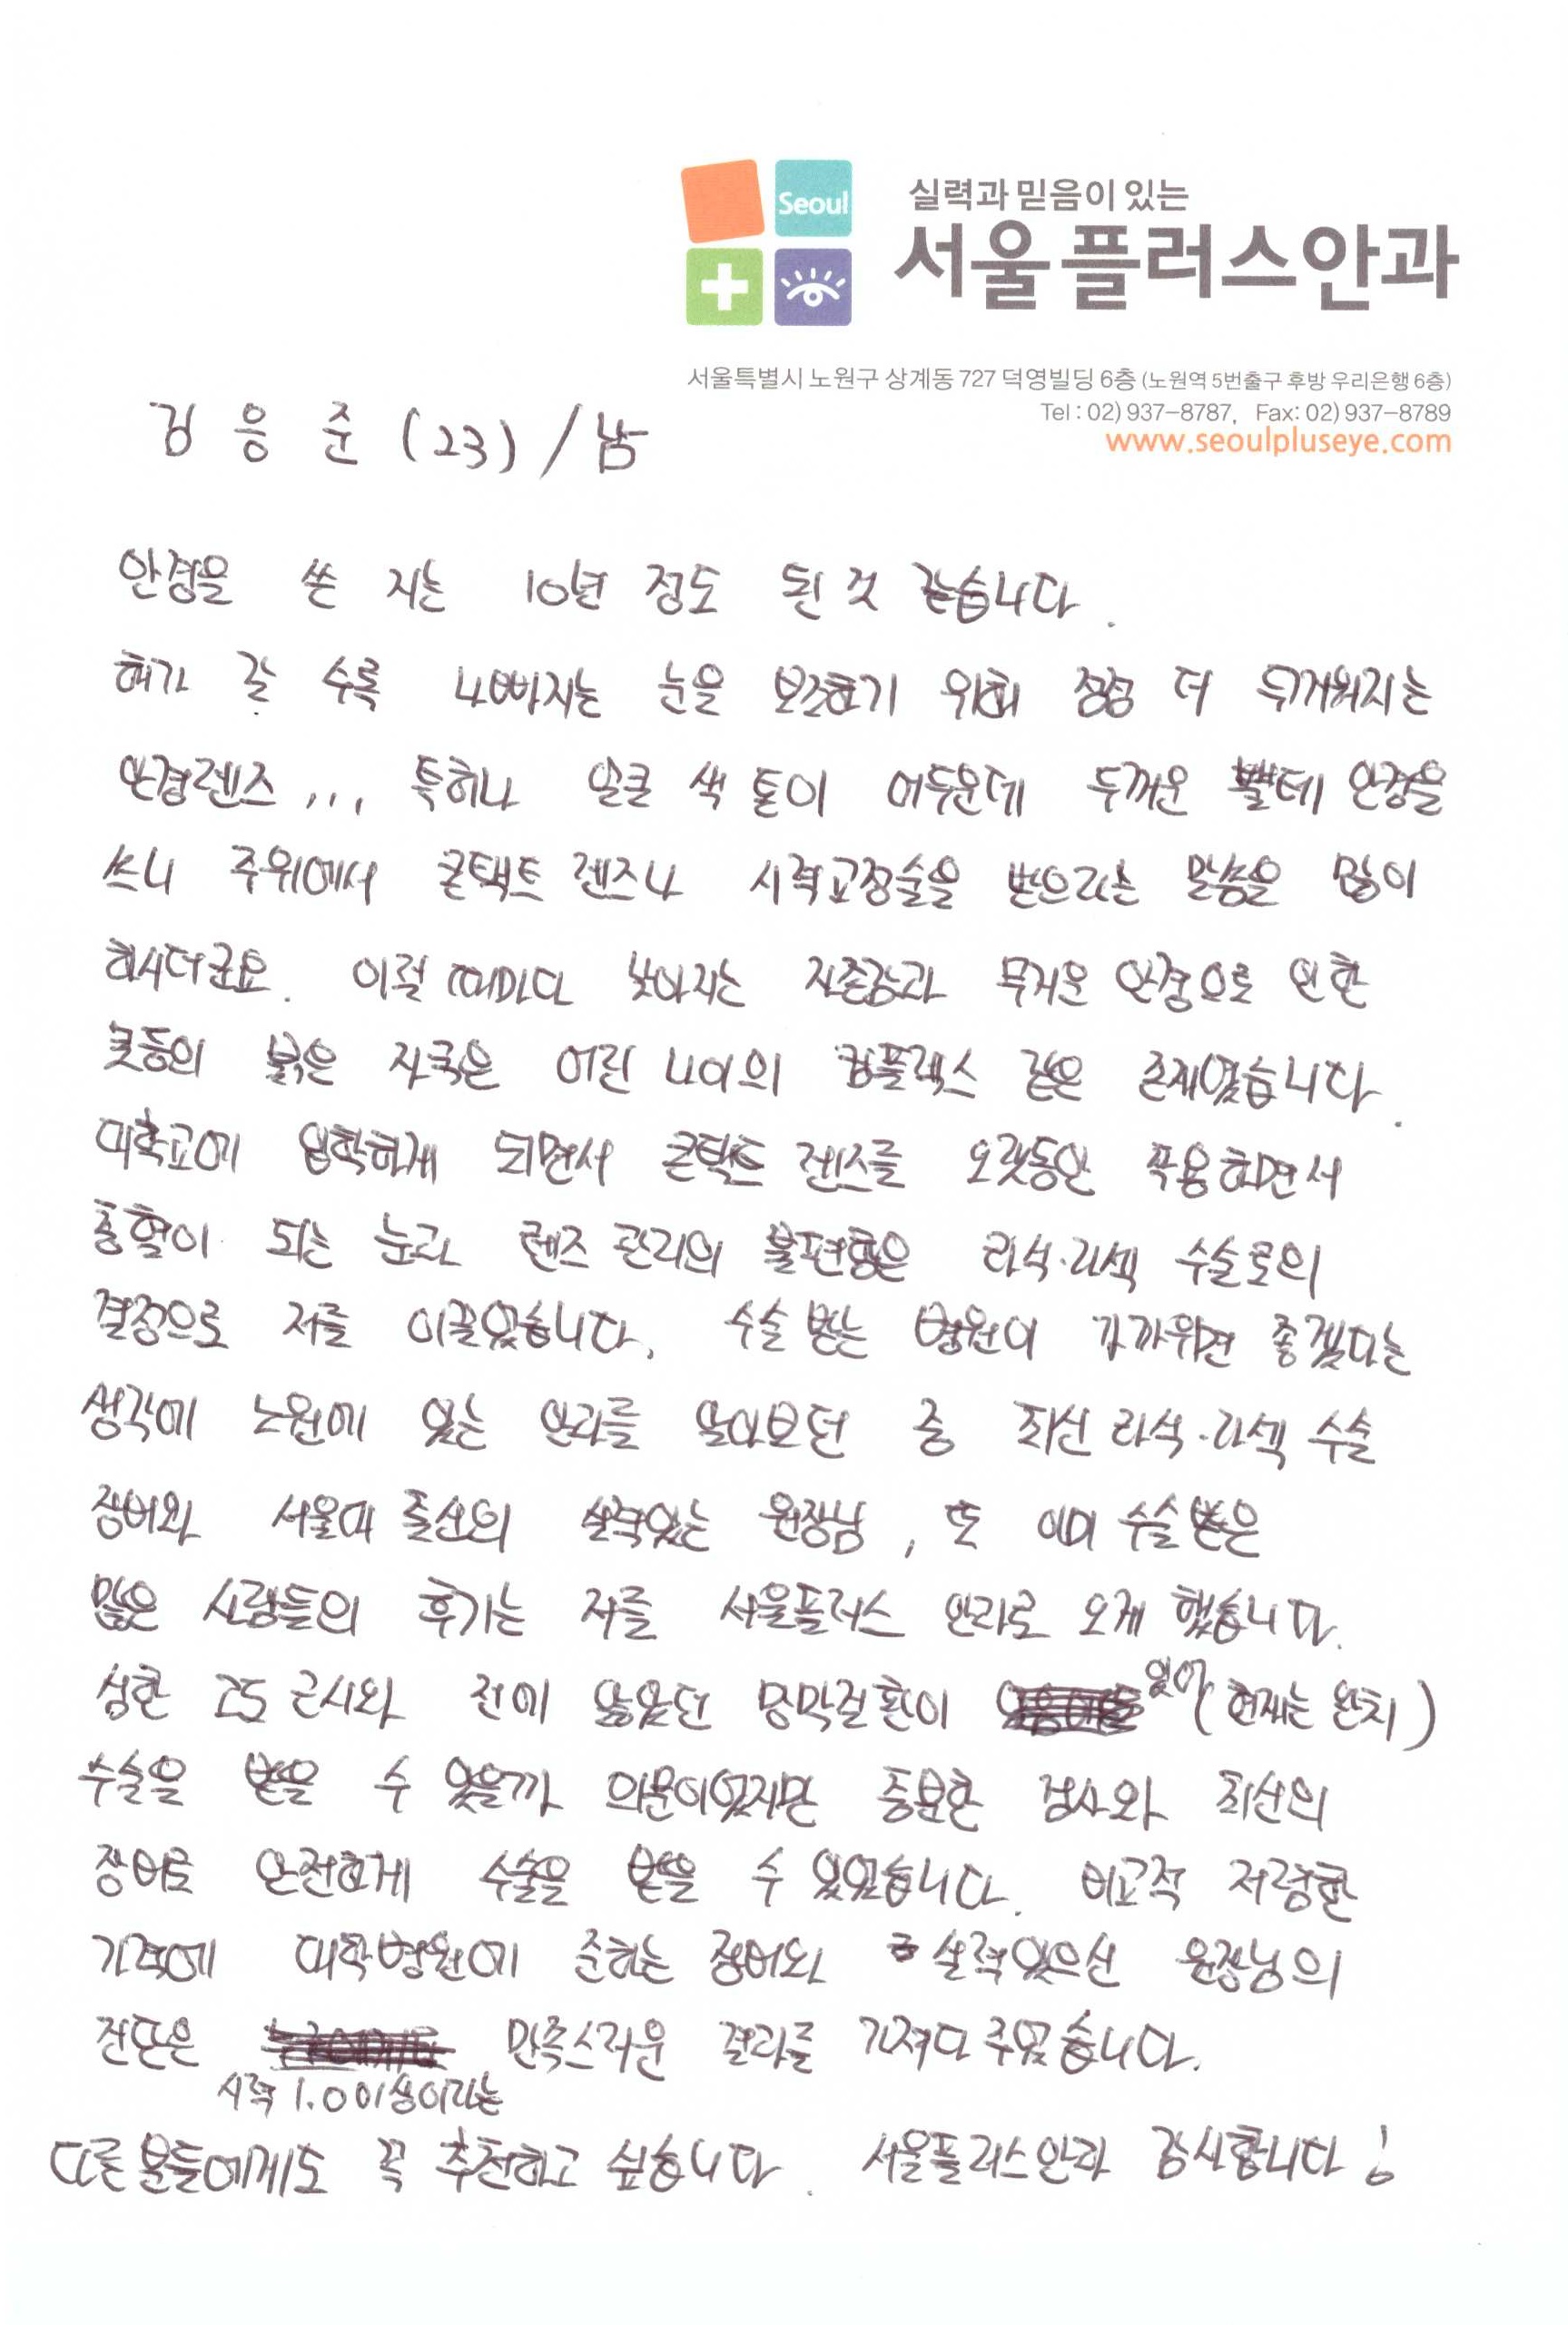 Seoul
실력과 믿음이 있는
서울플러스안과
서울특별시 노원구 상계동 727 덕영빌딩 6층 (노원역 5번출구 후방 우리은행 6층)
Tel : 02) 937-8787, Fax: 02) 937-8789
www.seoulpluseye.com
김 응 준 (23) / 남
안경을 쓴 지는 10년 정도 된 것 같습니다.
해가 갈 수록 나빠지는 눈을 보조하기 위해 점점 더 두꺼워지는
안경렌즈... 특히나 얼굴 색 톤이 어두운데 두꺼운 뿔테 안경을
쓰니 주위에서 콘택트 렌즈나 시력교정술을 받으라는 말씀을 많이
하시더군요. 이럴 때마다 낮아지는 자존감과 무거운 안경으로 인한
콧등의 붉은 자국은 어린 나이의 컴플렉스 같은 존재였습니다.
대학교에 입학하게 되면서 콘택트 렌즈를 오랫동안 착용하면서
충혈이 되는 눈과 렌즈 관리의 불편함은 라식·라섹 수술로의
결정으로 저를 이끌었습니다. 수술 받는 병원이 가까우면 좋겠다는
생각에 노원에 있는 안과를 알아보던 중 최신 라식·라섹 수술
장비와 서울대 출신의 실력있는 원장님, 또 이미 수술 받은
많은 사람들의 후기는 저를 서울플러스 안과로 오게 했습니다.
심한 고도 근시와 전에 앓았던 망막질환이 있어 (현재는 완치)
수술을 받을 수 있을까 의문이었지만 충분한 검사와 최신의
장비로 안전하게 수술을 받을 수 있었습니다. 비교적 저렴한
가격에 대학병원에 준하는 장비와 실력있으신 원장님의
진단은 시력 1.0이상이라는 만족스러운 결과를 가져다 주었습니다.
다른 분들에게도 꼭 추천하고 싶습니다. 서울플러스안과 감사합니다!